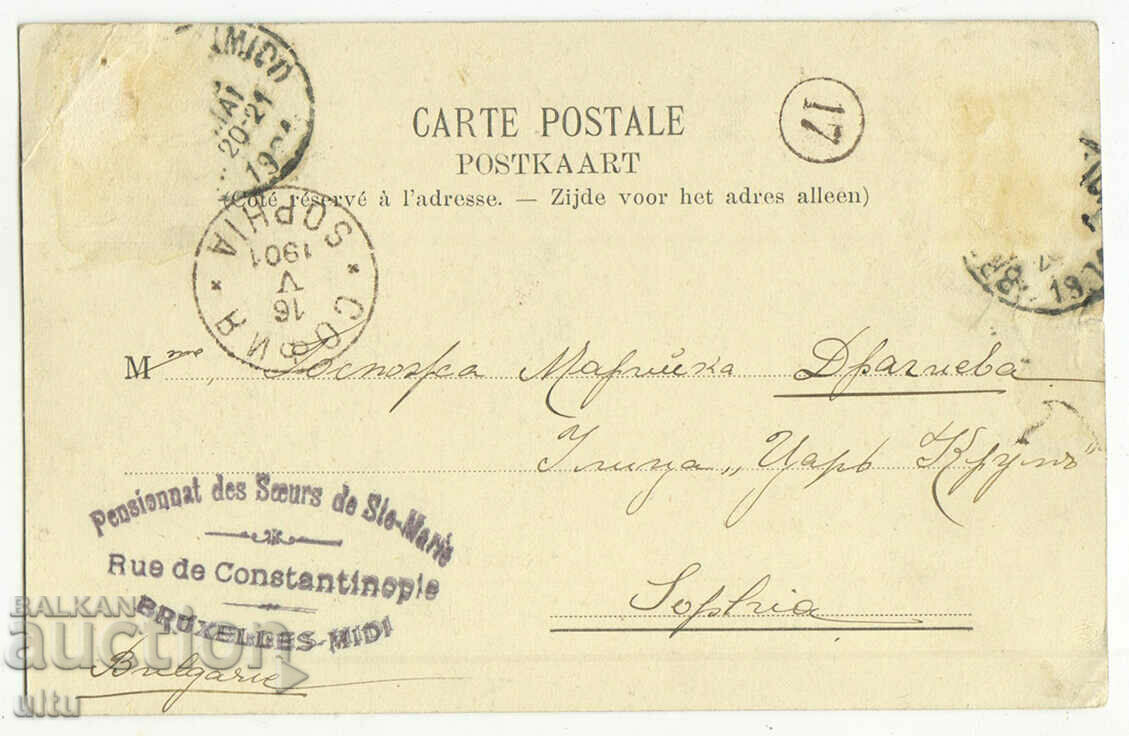 (MIDI)
MAI
20-21
CARTE POSTALE
POSTKAART
(Côté réservé à l'adresse. — Zijde voor het adres alleen)
17
* SOPHIA *
1901
V
16
СОФИЯ
Mme, Госпожа Марийка Драгиева
Улица „Царь Крумъ"
Pensionnat des Sœurs de Ste-Marie
Rue de Constantinople
BRUXELLES-MIDI
Sophia
Bulgarie
BALKAN
auction
ultu